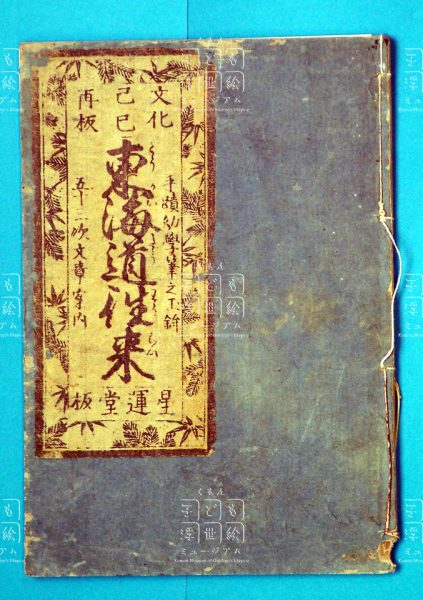 文化
己巳
再板
手蹟幼學筆之下
東海道往来
五十三次文章案内
星運堂板
くもん
子ども
浮世絵
ミュージアム
Kumon Museum of Children's Ukiyo-e